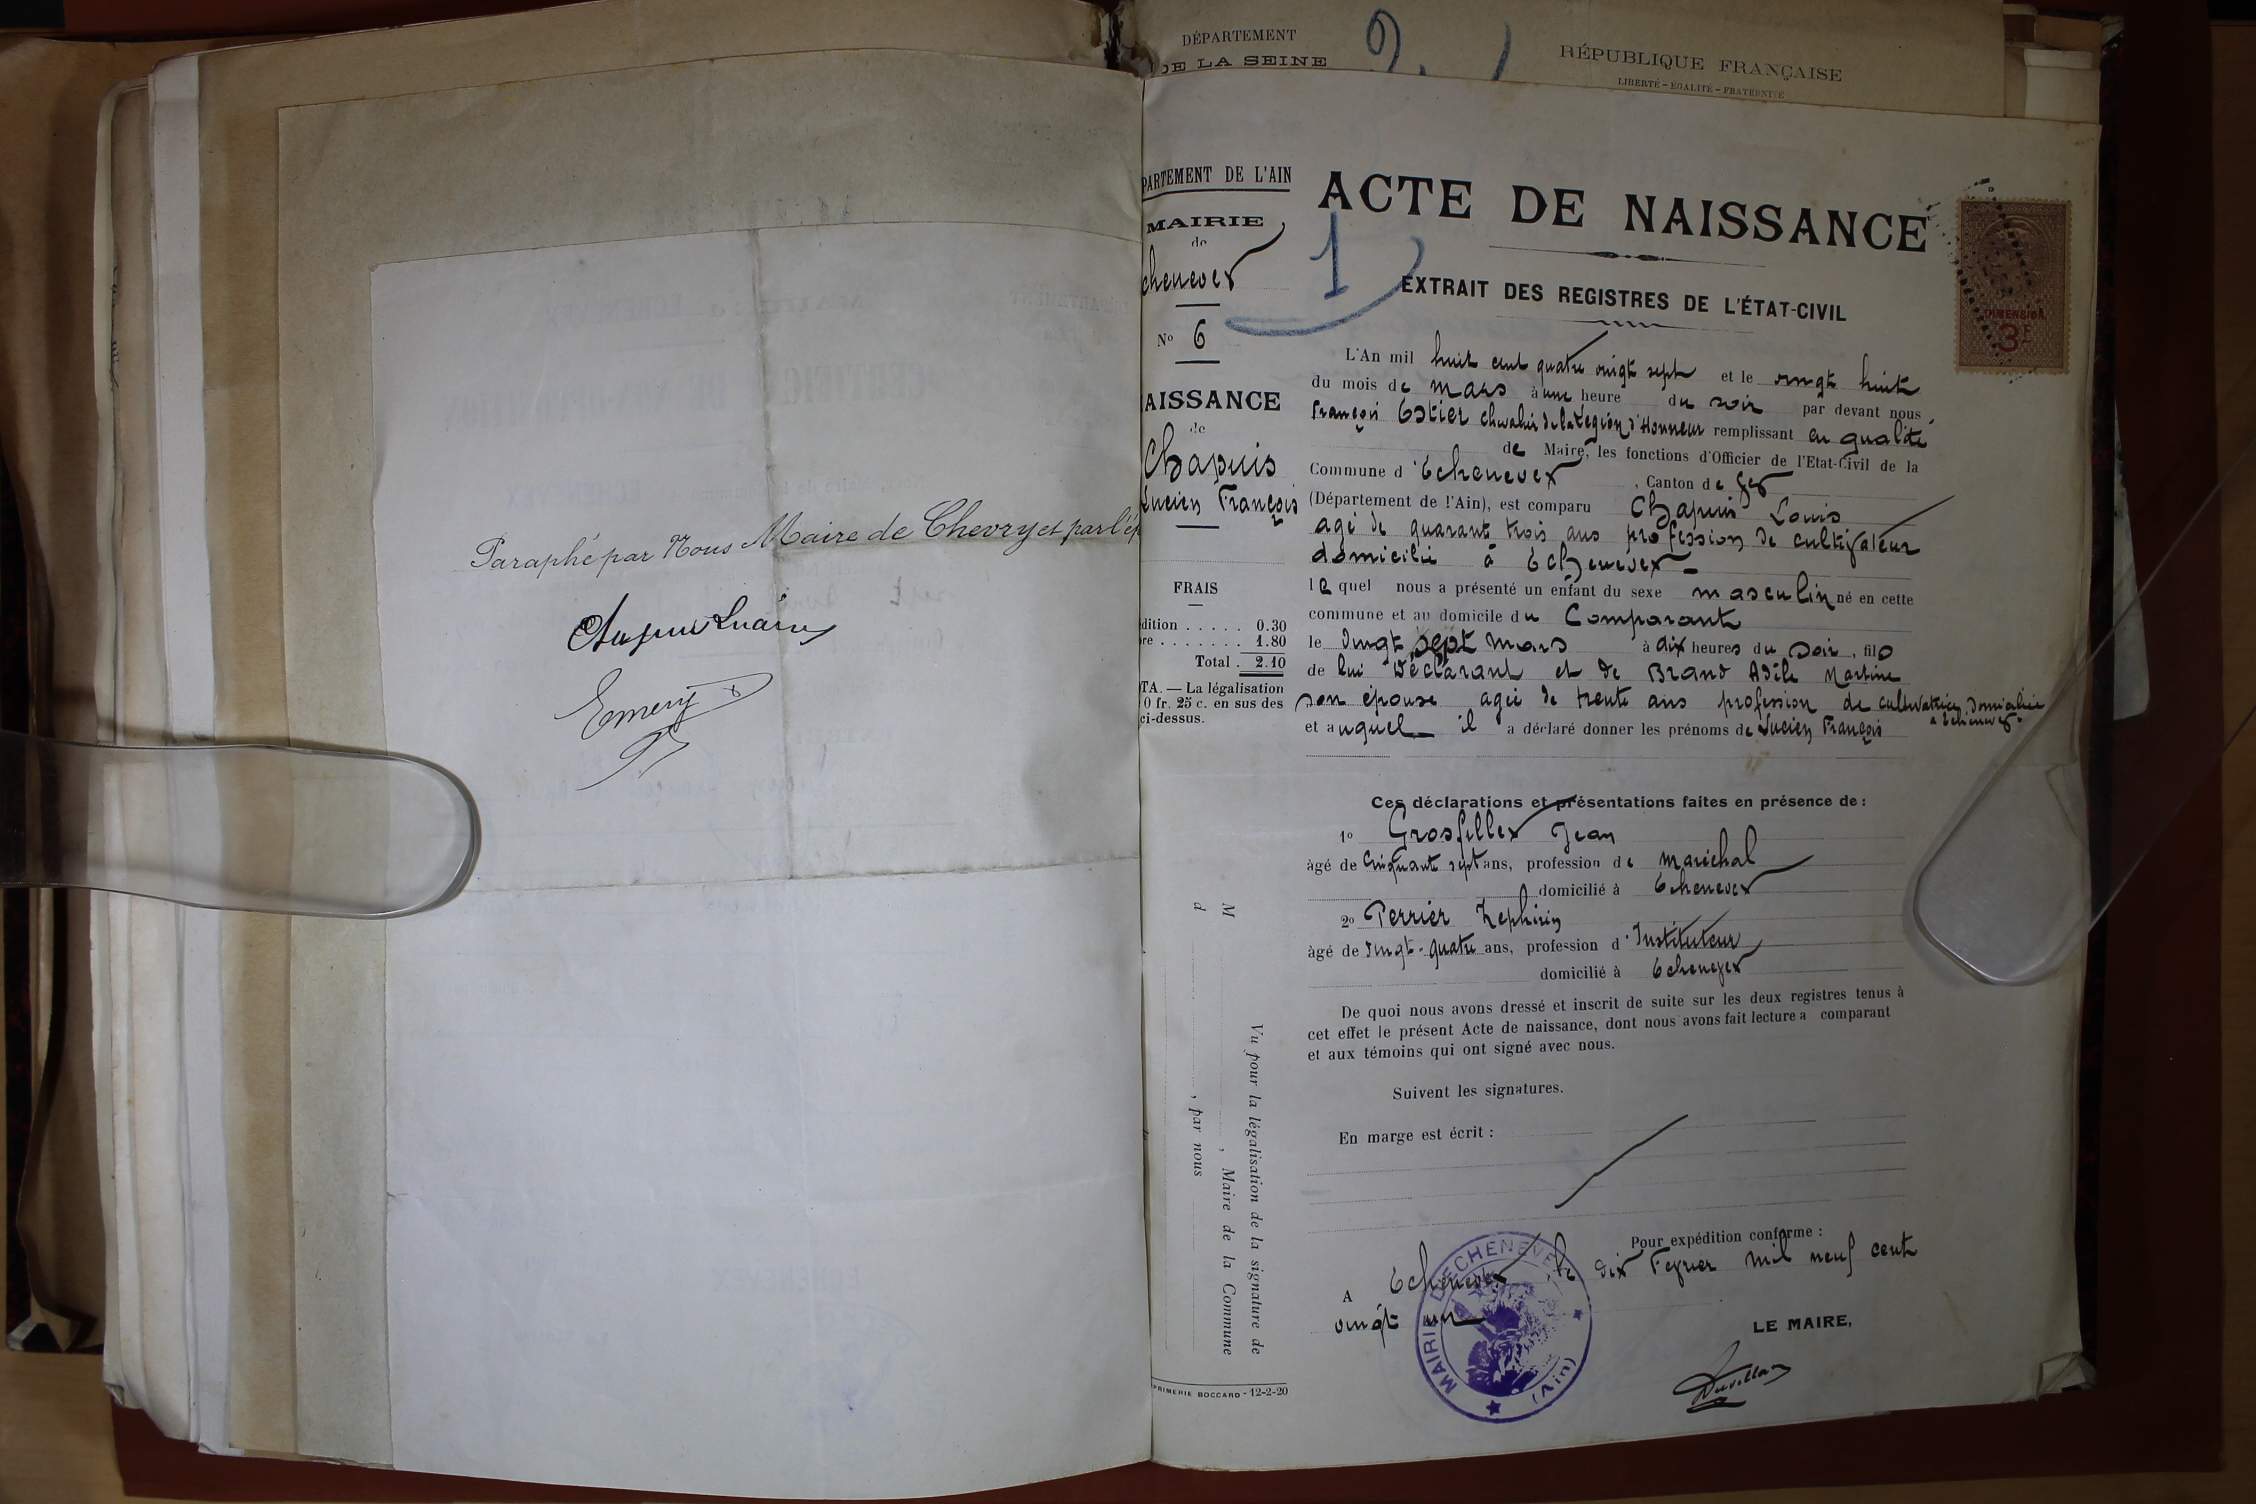 Paraphé par Nous Maire de Chevry et par l'ép
Chapuis Lucien
Emery
DÉPARTEMENT
DE LA SEINE
2
RÉPUBLIQUE FRANÇAISE
LIBERTÉ - EGALITÉ - FRATERNITÉ
PARTEMENT DE L'AIN
MAIRIE
de
chenevex
No 6
AISSANCE
de
Chapuis
Lucien François
FRAIS
dition . . . . . 0.30
re . . . . . . . 1.80
Total . 2.10
TA. — La légalisation
0 fr. 25 c. en sus des
ci-dessus.
Vu pour la légalisation de la signature de
M , Maire de la Commune
d , par nous
PRIMERIE BOCCARD - 12-2-20
ACTE DE NAISSANCE
1
EXTRAIT DES REGISTRES DE L'ÉTAT-CIVIL
DIMENSION
3F
L'An mil huit cent quatre vingt sept et le vingt huit
du mois de mars à une heure du soir par devant nous
François Estier chevalier de la Légion d'Honneur remplissant en qualité
de Maire, les fonctions d'Officier de l'Etat-Civil de la
Commune d'Echenevex, Canton de Gex
(Département de l'Ain), est comparu Chapuis Louis
agé de quarante trois ans profession de cultivateur
domicilié à Echenevex
lequel nous a présenté un enfant du sexe masculin né en cette
commune et au domicile du Comparant
le vingt sept mars à dix heures du soir, fils
de lui Déclarant et de Brand Adèle Martine
son épouse agée de trente ans profession de cultivatrice domiciliée
à Echenevex
et auquel il a déclaré donner les prénoms de Lucien François
Ces déclarations et présentations faites en présence de :
1o Grosfillex Jean
âgé de cinquante sept ans, profession de maréchal
domicilié à Echenevex
2o Perrier Zephirin
âgé de vingt-quatre ans, profession d'Instituteur
domicilié à Echenevex
De quoi nous avons dressé et inscrit de suite sur les deux registres tenus à
cet effet le présent Acte de naissance, dont nous avons fait lecture a comparant
et aux témoins qui ont signé avec nous.
Suivent les signatures.
En marge est écrit :
Pour expédition conforme :
A Echenevex le dix Fevrier mil neuf cent
vingt un
MAIRIE D'ECHENEVEX
(Ain)
LE MAIRE,
Duvillard